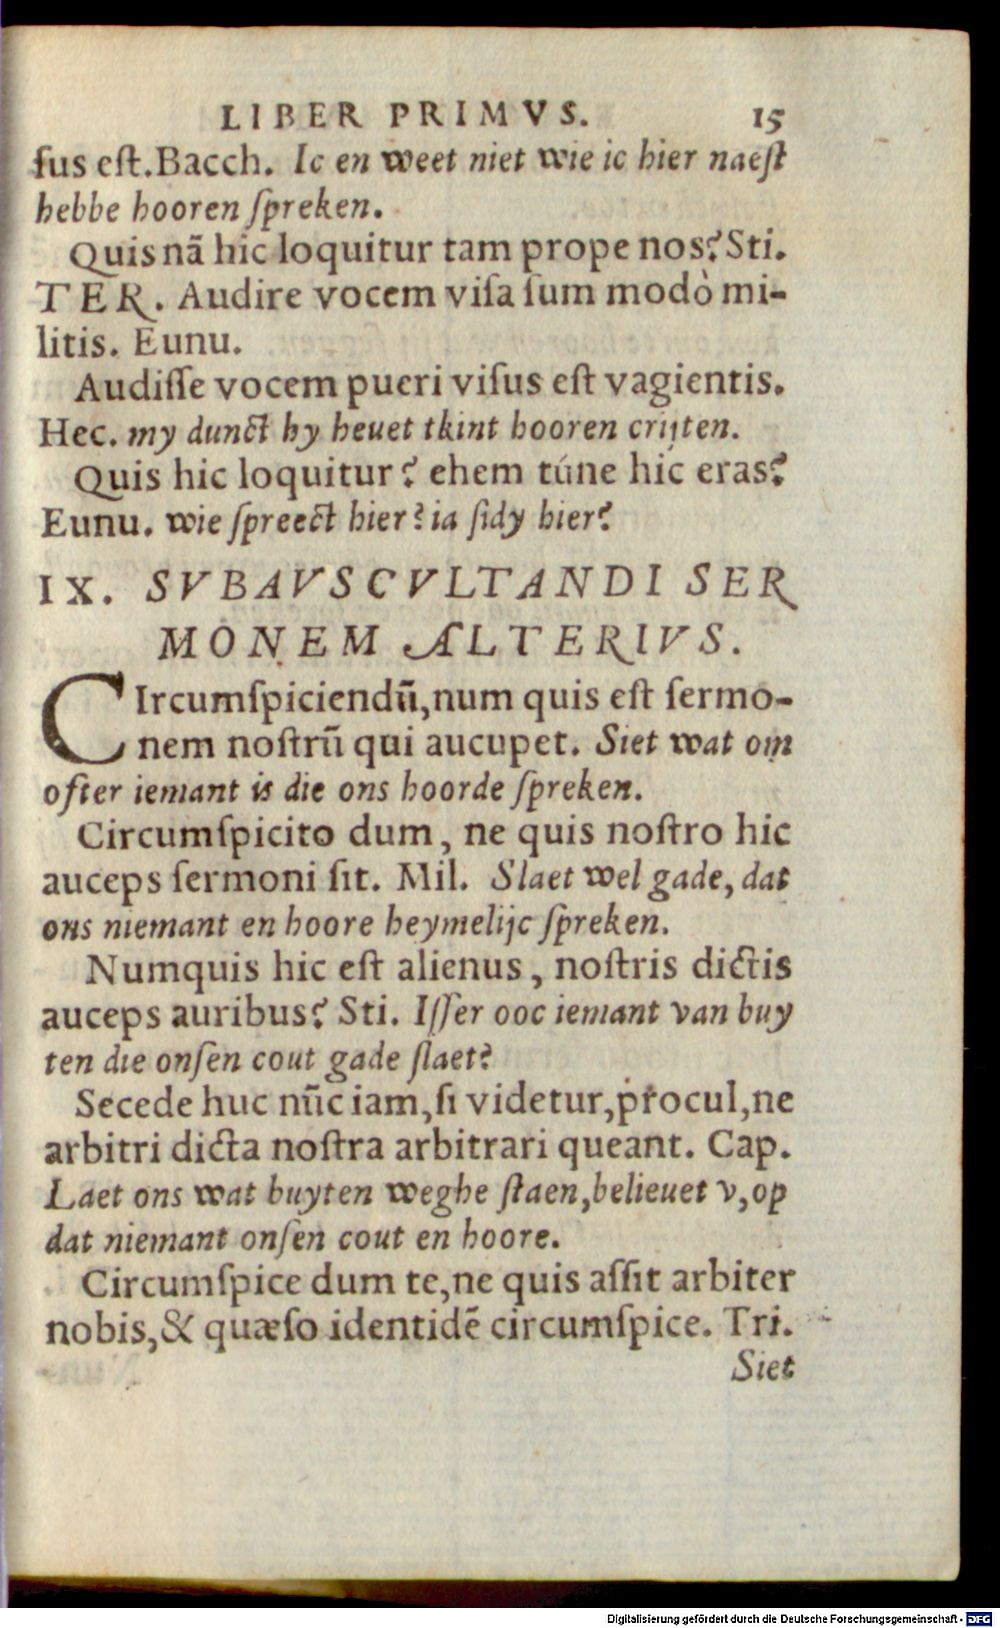 LIBER PRIMVS. 15
ſus eſt. Bacch. Ic en weet niet wie ic hier naeſt
hebbe hooren ſpreken.
Quisnā hic loquitur tam prope nos? Sti.
TER. Audire vocem viſa ſum modò mi-
litis. Eunu.
Audiſſe vocem pueri viſus eſt vagientis.
Hec. my dunct hy heuet tkint hooren crijten.
Quis hic loquitur? ehem túne hic eras?
Eunu. wie ſpreect hier? ia ſidy hier?
IX. SVBAVSCVLTANDI SER
MONEM ALTERIVS.
CIrcumſpiciendū, num quis eſt ſermo-
nem noſtrū qui aucupet. Siet wat om
ofter iemant is die ons hoorde ſpreken.
Circumſpicito dum, ne quis noſtro hic
auceps ſermoni ſit. Mil. Slaet wel gade, dat
ons niemant en hoore heymelijc ſpreken.
Numquis hic eſt alienus, noſtris dictis
auceps auribus? Sti. Iſſer ooc iemant van buy
ten die onſen cout gade ſlaet?
Secede huc nūc iam, ſi videtur, procul, ne
arbitri dicta noſtra arbitrari queant. Cap.
Laet ons wat buyten weghe ſtaen, belieuet v, op
dat niemant onſen cout en hoore.
Circumſpice dum te, ne quis aſſit arbiter
nobis, & quæſo identidē circumſpice. Tri.
Siet
Digitalisierung gefördert durch die Deutsche Forschungsgemeinschaft - DFG